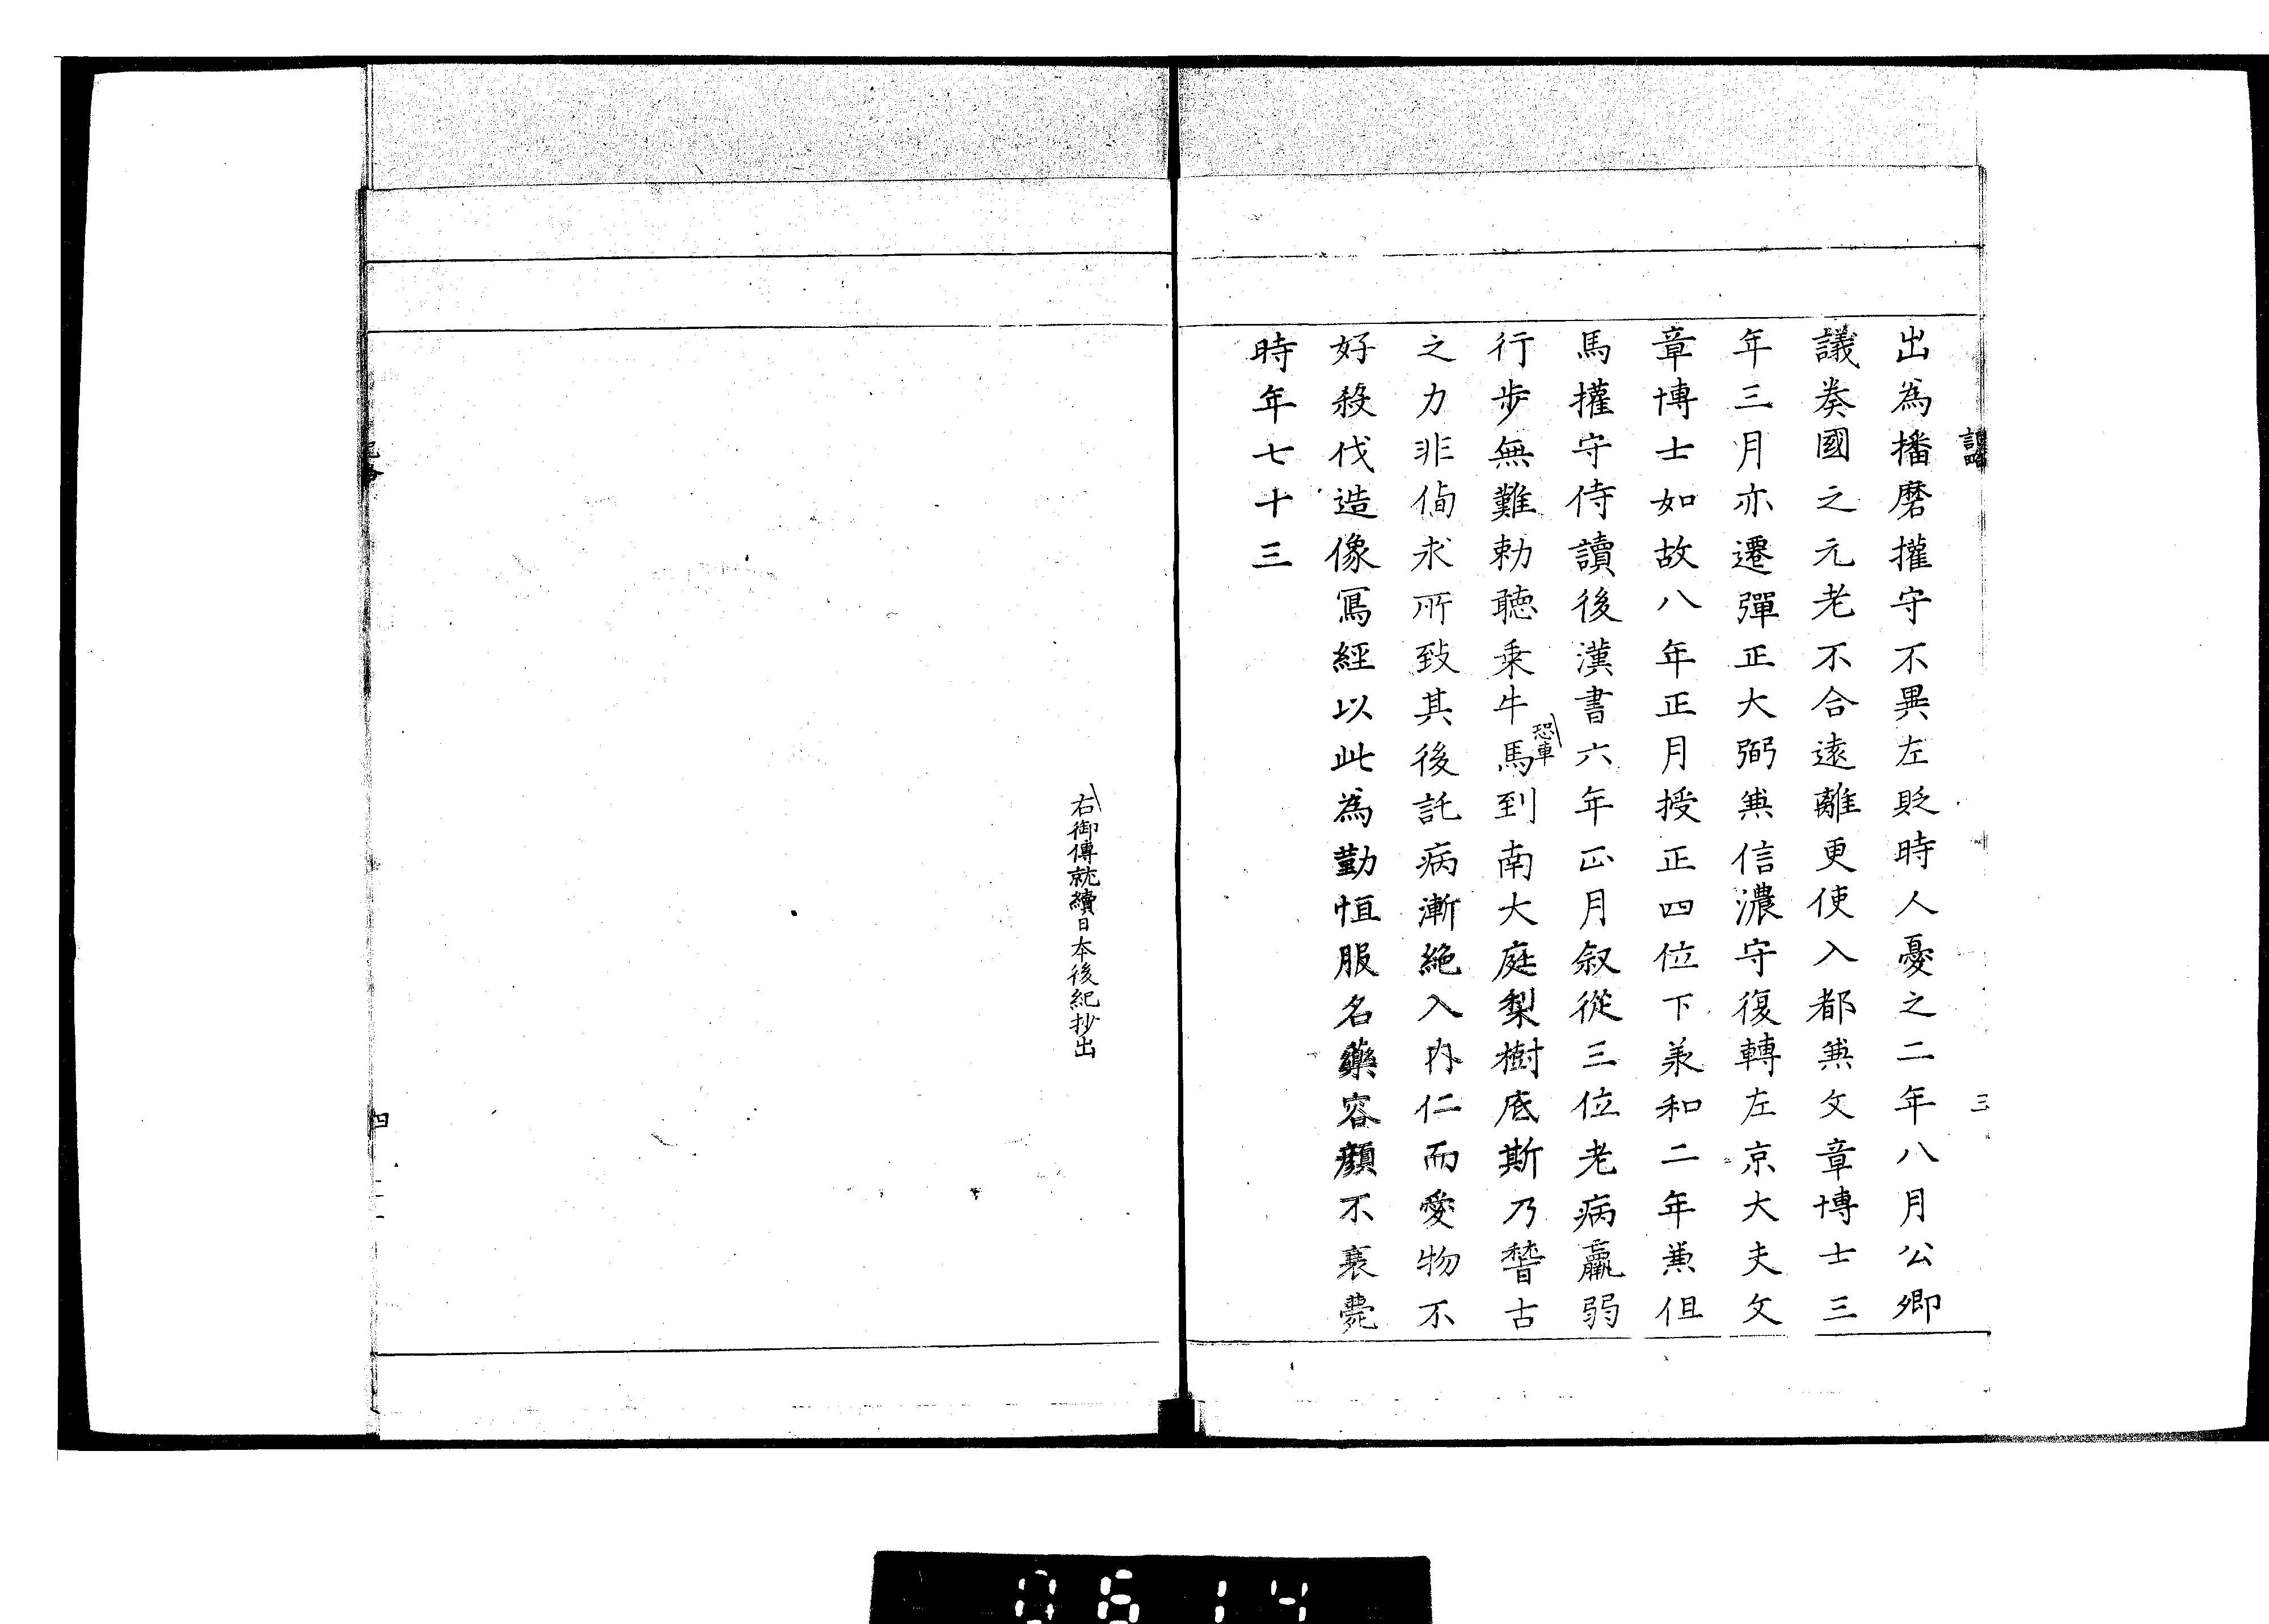 出為播磨權守不異左貶時人憂之二年八月公卿
議奏國之元老不合遠離更使入都兼文章博士三
年三月亦遷彈正大弼兼信濃守復轉左京大夫文
章博士如故八年正月授正四位下美和二年兼但
馬權守侍讀後漢書六年正月叙從三位老病羸弱
行步無難勅聽乗牛馬到南大庭梨樹底斯乃稽古
恐車
之力非偱求所致其後託病漸絶入内仁而愛物不
好殺伐造像寫經以此為勤恒服名藥容顔不衰薨
時年七十三
三
右御傳就續日本後紀抄出
四
0614